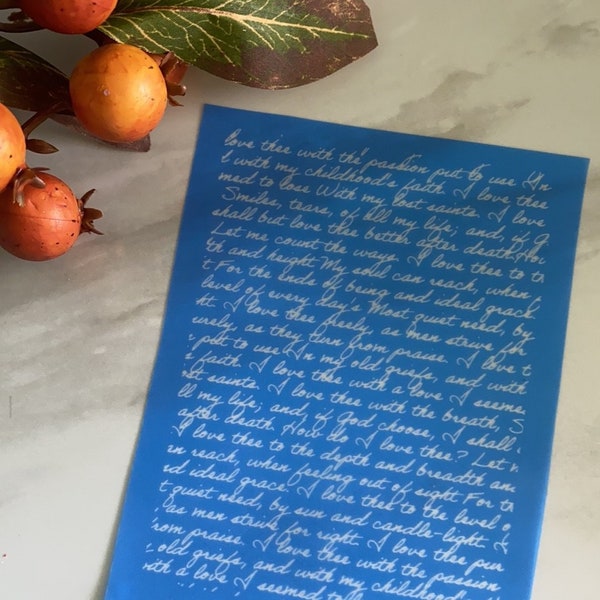 love thee with the passion put to use In
t with my childhood's faith. I love thee
med to lose With my lost saints. I love
Smiles, tears, of all my life; and, if G
shall but love thee better after death. How
Let me count the ways. I love thee to t
th and height My soul can reach, when f
t For the ends of being and ideal grace
level of every day's Most quiet need, by
ht. I love thee freely, as men strive for
urely, as they turn from praise. I love t
put to use In my old griefs, and with
faith. I love thee with a love I seeme
st saints. I love thee with the breath, S
ll my life; and, if God choose, I shall
after death. How do I love thee? Let
I love thee to the depth and breadth an
en reach, when feeling out of sight For t
nd ideal grace. I love thee to the level o
t quiet need, by sun and candle-light.
as men strive for right. I love thee pur
rom praise. I love thee with the passion
old griefs, and with my childhood's
ith a love I seemed to l